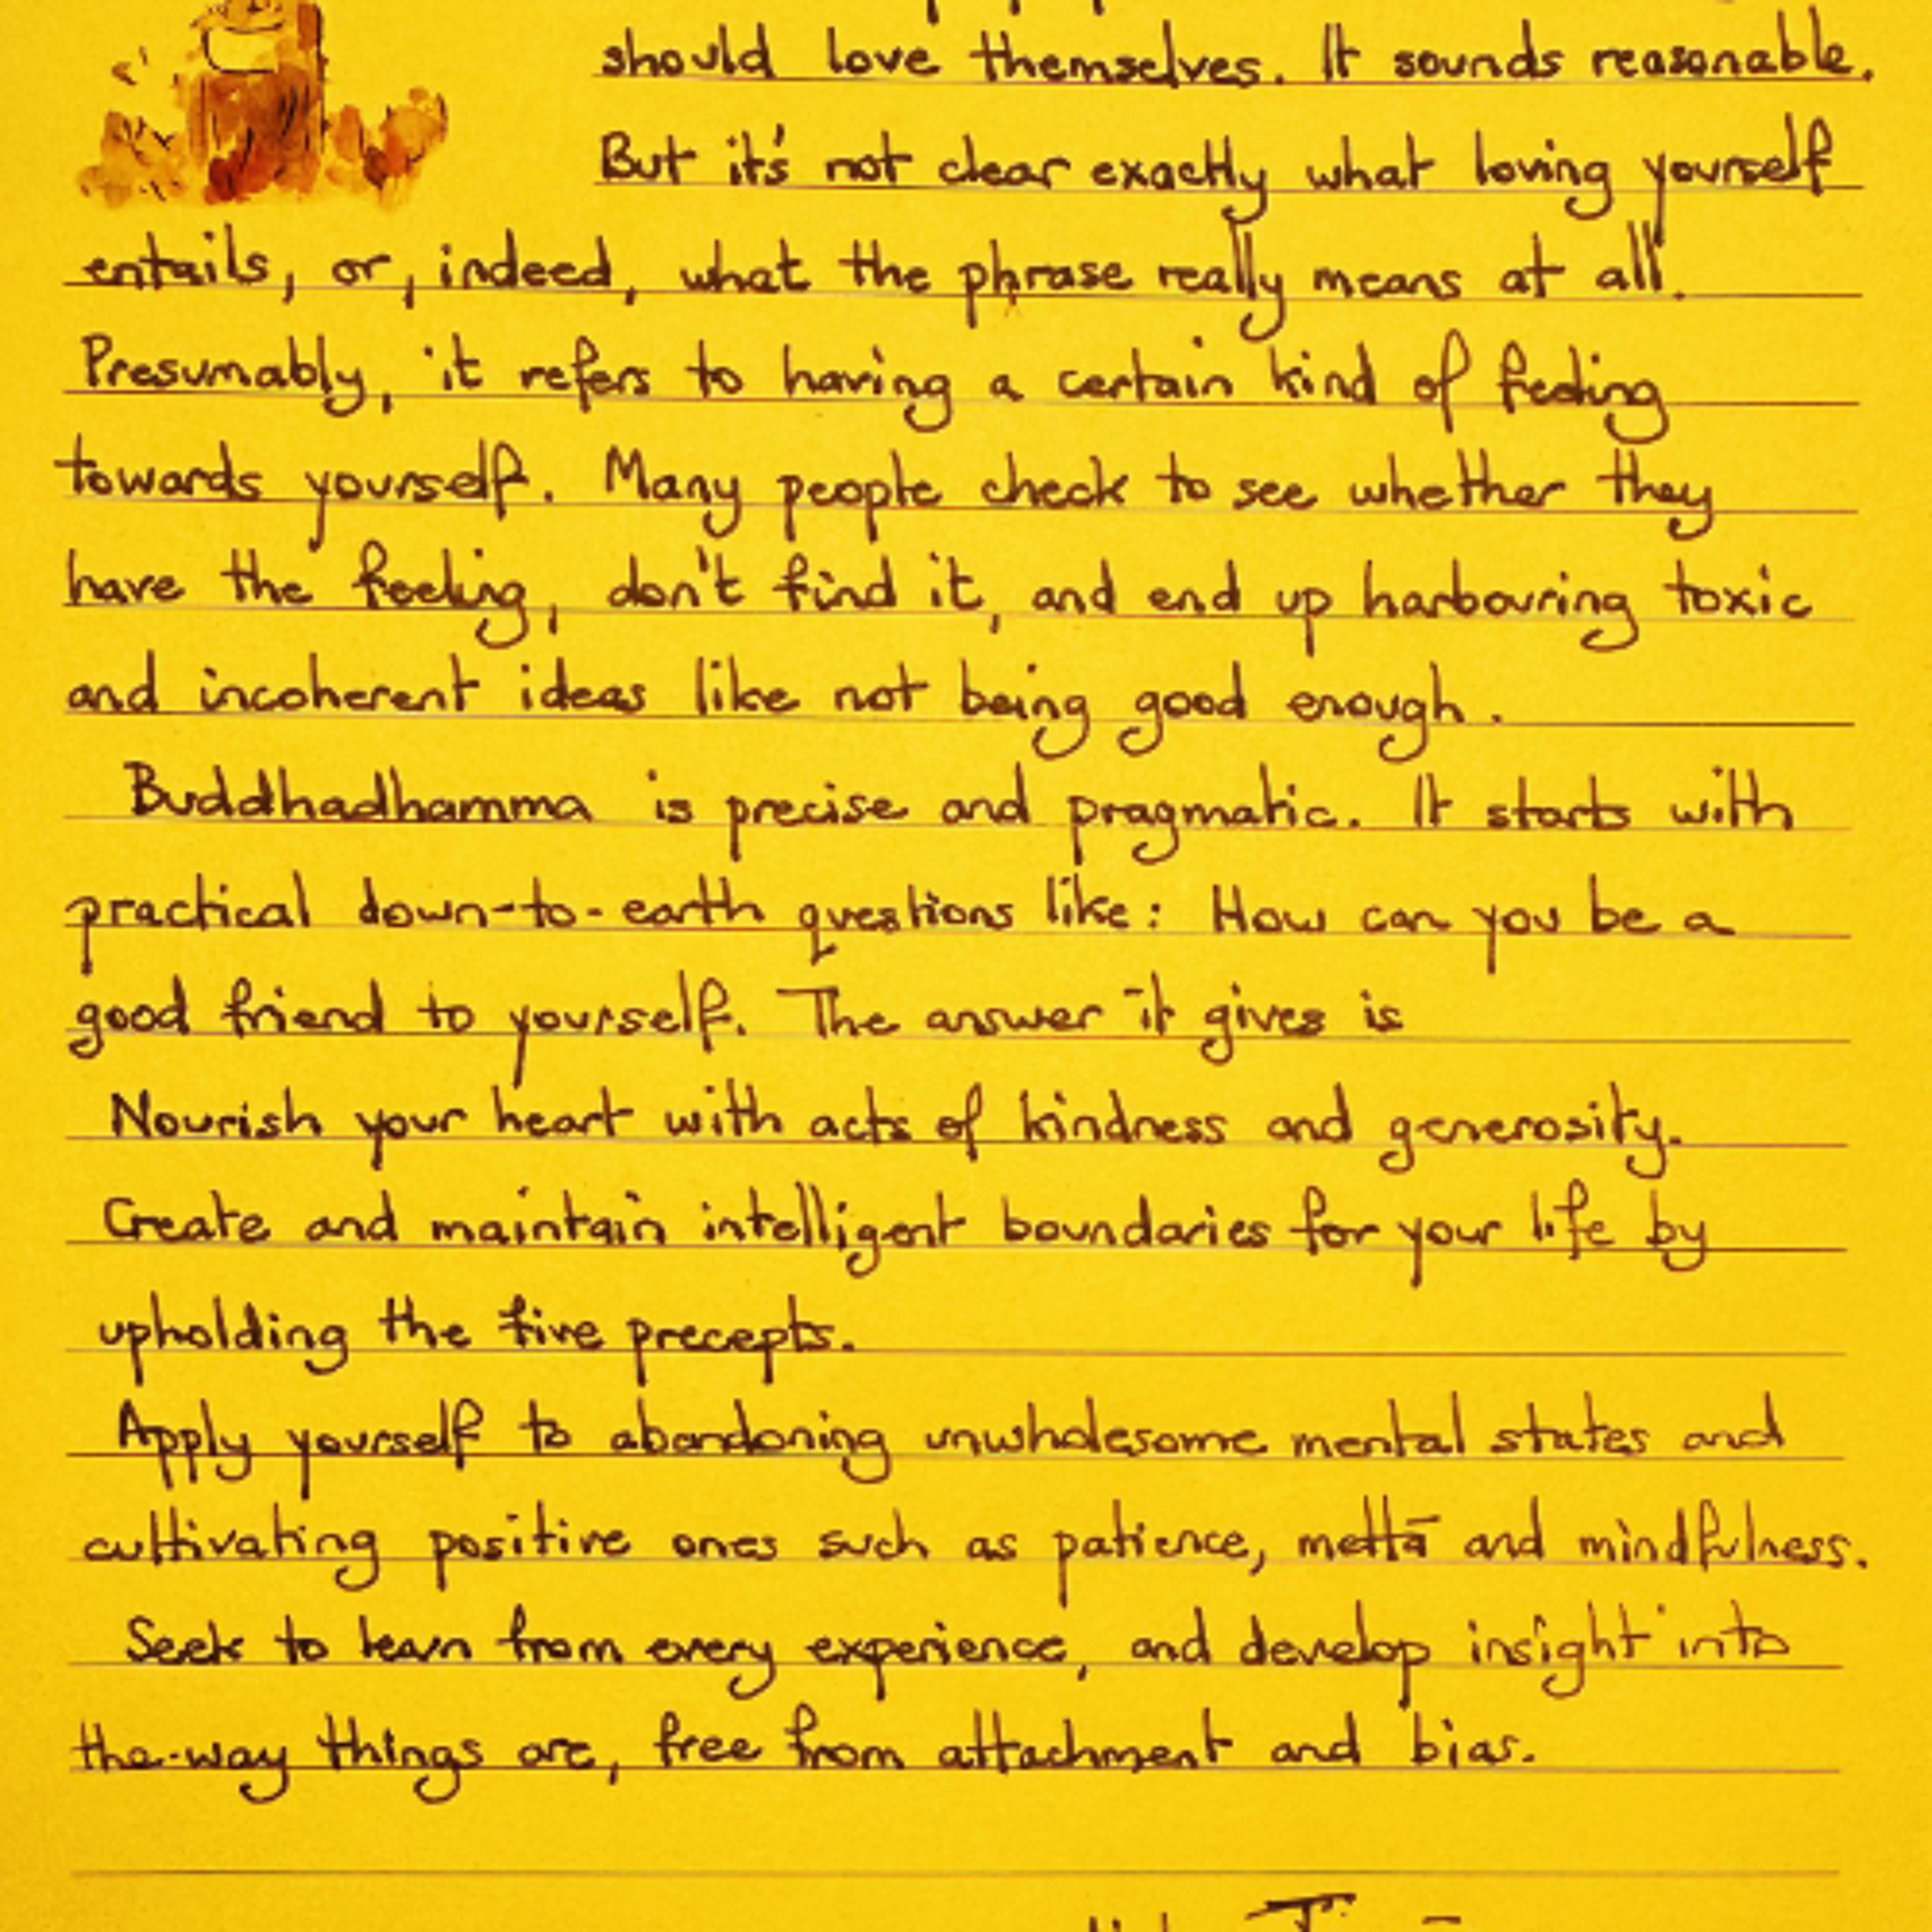 should love themselves. It sounds reasonable.
But it's not clear exactly what loving yourself
entails, or, indeed, what the phrase really means at all.
Presumably, it refers to having a certain kind of feeling
towards yourself. Many people check to see whether they
have the feeling, don't find it, and end up harbouring toxic
and incoherent ideas like not being good enough.
Buddhadhamma is precise and pragmatic. It starts with
practical down-to-earth questions like: How can you be a
good friend to yourself. The answer it gives is
Nourish your heart with acts of kindness and generosity.
Create and maintain intelligent boundaries for your life by
upholding the five precepts.
Apply yourself to abandoning unwholesome mental states and
cultivating positive ones such as patience, mettā and mindfulness.
Seek to learn from every experience, and develop insight into
the-way things are, free from attachment and bias.